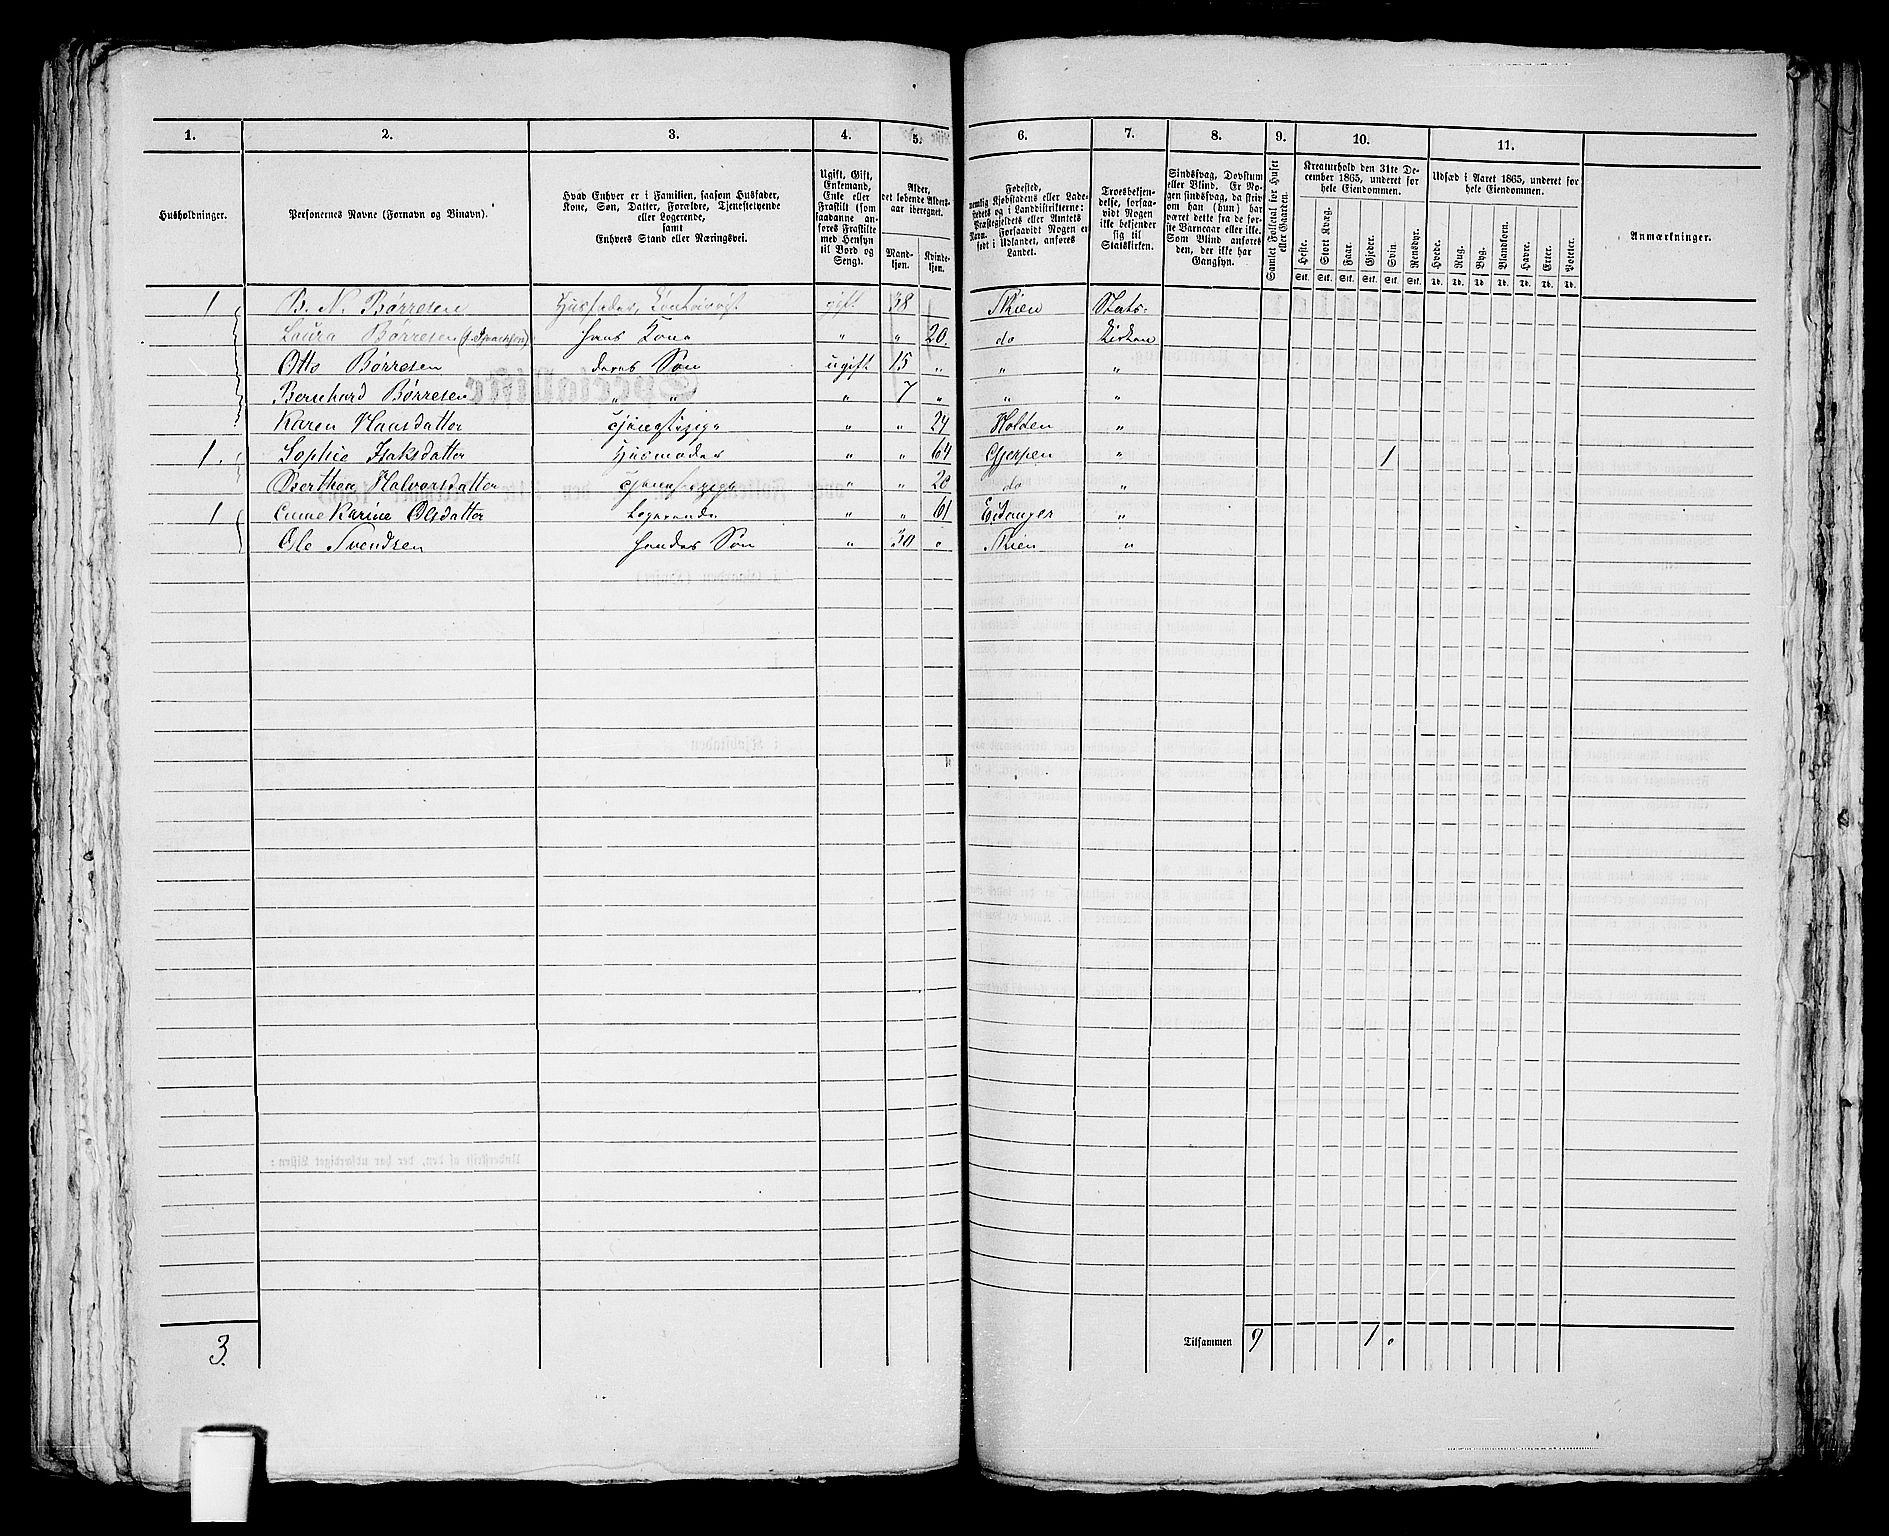 1. 2. 3. 4. 5. 6. 7. 8. 9. 10. 11.
Husholdninger.
Personernes Navne (Fornavn og Binavn).
Hvad Enhver er i Familien, saasom Husfader, Kone, Søn, Datter, Forældre, Tjenestetyende eller Logerende, samt Enhvers Stand eller Næringsvei.
Ugift, Gift, Enkemand, Enke eller Fraskilt (som saadanne anføres Fraskilte med Hensyn til Bord og Seng).
Alder, det løbende Alders-aar iberegnet.
Mand-kjøn. Kvinde-kjøn.
Fødested, nemlig Kjøbstadens eller Ladestedets og i Landdistrikterne: Præstegjeldets eller Amtets Navn. Forsaavidt Nogen er født i Udlandet, anføres Landet.
Troesbekjendelse, forsaavidt Nogen ikke bekjender sig til Statskirken.
Sindssvag, Døvstum eller Blind. Er Nogen sindssvag, da skriv om han (hun) har været dette fra de første Barneaar eller ikke. Som Blind anføres den, der ikke har Gangsyn.
Samlet Folketal for Huset eller Gaarden.
Kreaturhold den 31te December 1865, underet for hele Eiendommen.
Heste. Stort Kvæg. Faar. Gjeder. Svin. Rensdyr.
Stk. Stk. Stk. Stk. Stk. Stk.
Udsæd i Aaret 1865, underet for hele Eiendommen.
Hvede. Rug. Byg. Blandkorn. Havre. Erter. Poteter.
Td. Td. Td. Td. Td. Td. Td.
Anmærkninger.
1 B. N. Børresen Husfader, gift 38 Skien Stats-
Laura Børresen hans Kone " " 20 do Kirken
Otto Børresen deres Søn ugift 15 " " "
Bernhard Børresen " " " 7 " " "
Karen Hansdatter Tjenestepige " " 24 Holden "
1. Sophie Isaksdatter Husmoder " " 64 Gjerpen " 1
Berthea Halvorsdatter Tjenestepige " " 20 do "
1 Anne Karine Olsdatter Logerende " " 61 Eidanger "
Ole Svendsen hendes Søn " 30 " Skien "
3. Tilsammen 9 1